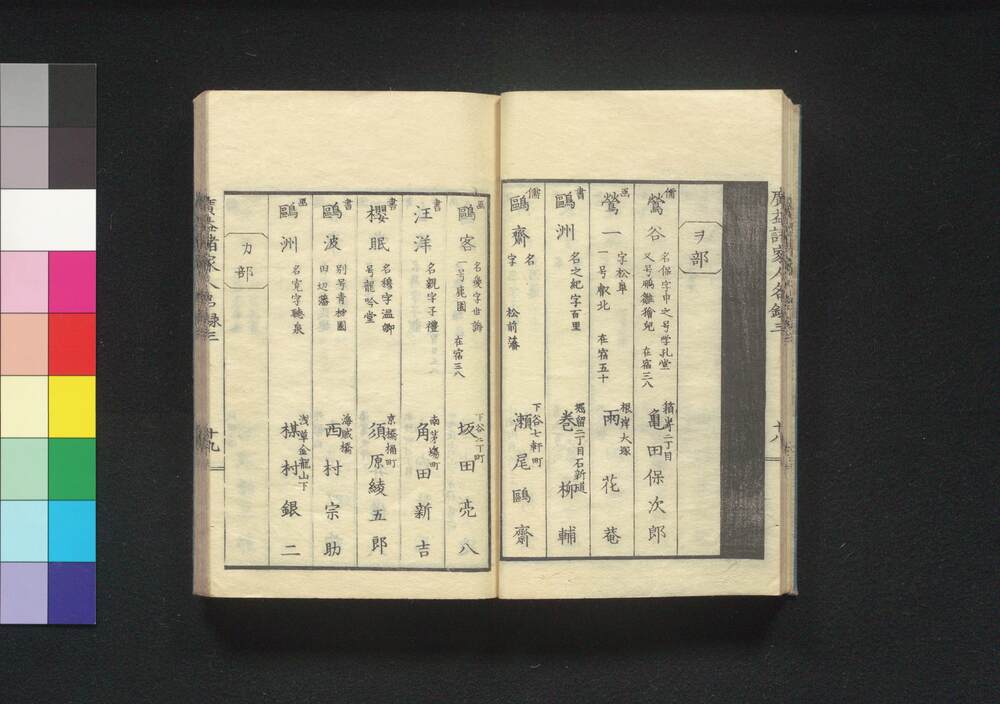 廣益諸家人名録三
十八
ヲ部
儒
鶯谷
名保字申之号学孔堂
又号鵬雛𤢖兒 在宿三八
箱崎二丁目
亀田保次郎
画
鶯一
字松皐
一号觀北 在宿五十
根岸大塚
雨花菴
書
鷗洲
名之紀字百里
堀留二丁目石新道
巻柳輔
儒
鷗齋
名
字 松前藩
下谷七軒町
瀬尾鷗齋
画
鷗客
名俊字世
一号晁園 在宿三八
下谷二丁町
坂田亮八
書
汪洋
名親字子禮
南茅場町
角田新吉
書
櫻眠
名穆字温卿
号龍吟堂
京橋桶町
須原綾五郎
書
鷗波
別号青柿園
田辺藩
海賊橋
西村宗助
画
鷗洲
名寛字聴泉
浅草金龍山下
楳村銀二
カ部
廣益諸家人名録三
十九